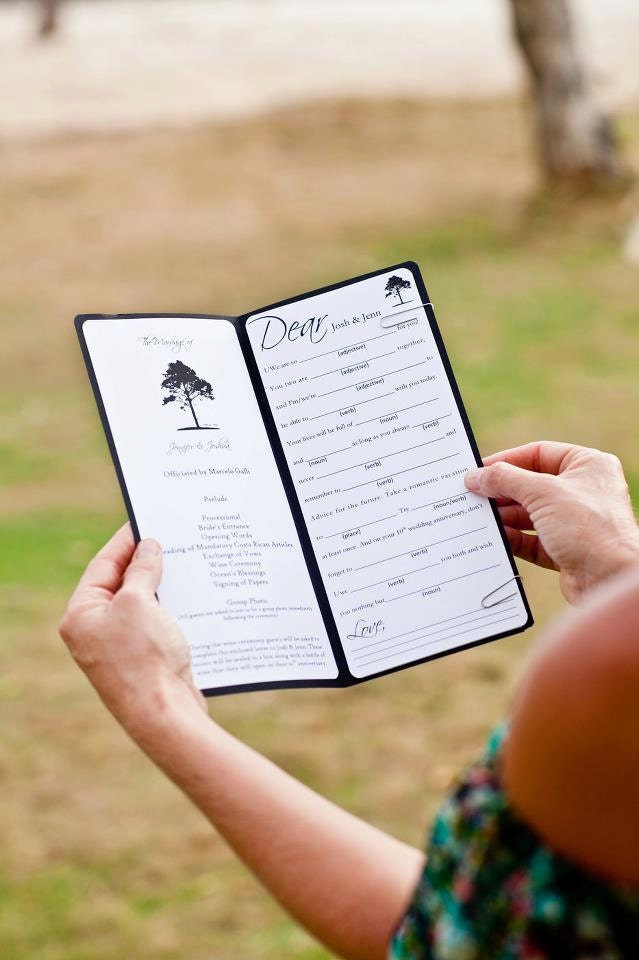 The Marriage of
Jennifer & Joshua
Officiated by Marcelo Galli
Prelude
Processional
Bride's Entrance
Opening Words
eading of Mandatory Costa Rican Articles
Exchange of Vows
Wine Ceremony
Ocean's Blessings
Signing of Papers
Group Photo
(All guests are asked to join us for a group photo immediately
following the ceremony)
During the wine ceremony guests will be asked to
complete the enclosed letter to Josh & Jenn. These
will be sealed in a box along with a bottle of
wine that they will open on their 10th anniversary.
Dear Josh & Jenn
I/We are so for you!
(adjective)
You two are together,
(adjective)
and I'm/we're to
(adjective)
be able to with you today.
(verb)
Your lives will be full of
(noun)
and as long as you always
(noun) (verb)
never and
(verb)
remember to
(verb)
Advice for the future: Take a romantic vacation
to Try
(place) (noun/verb)
at least once. And on your 10th wedding anniversary, don't
forget to
(verb)
I/we you both and wish
(verb)
you nothing but
(noun)
Love,